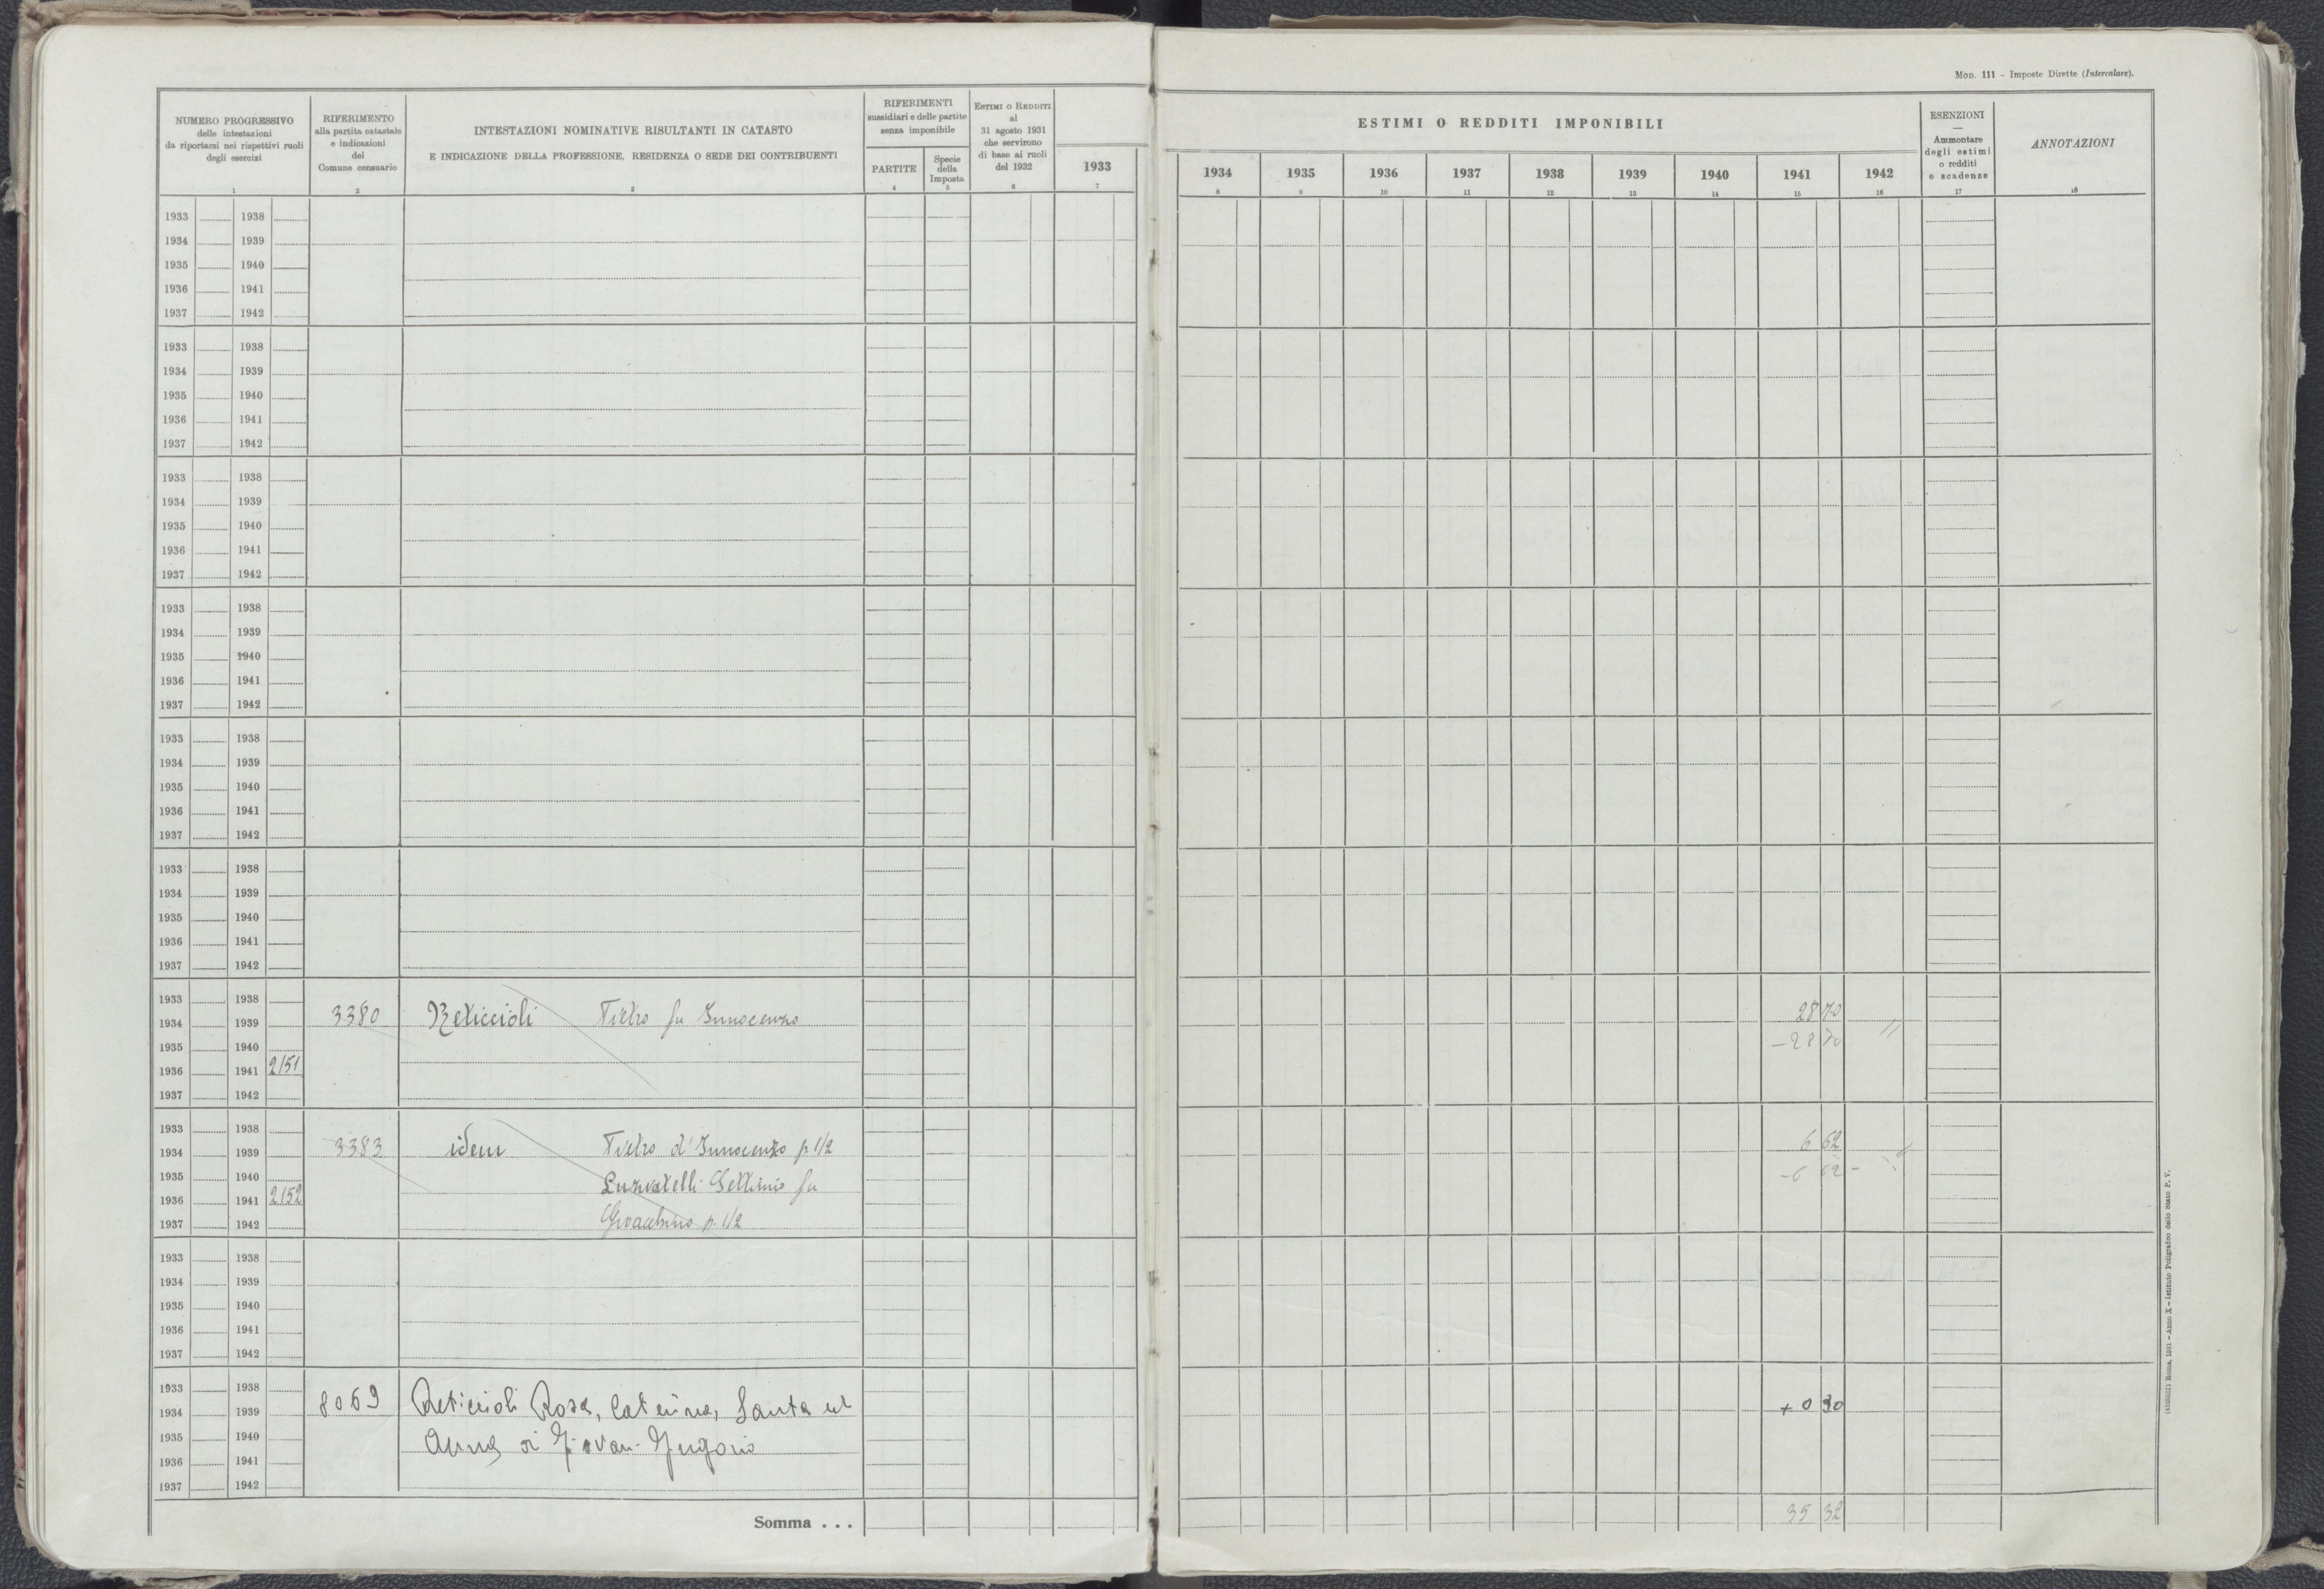 MOD. 111 - Imposte Dirette (Intercalare).
NUMERO PROGRESSIVO
delle intestazioni
da riportarsi nei rispettivi ruoli
degli esercizi
1
RIFERIMENTO
alla partita catastale
e indicazioni
del
Comune censuario
2
INTESTAZIONI NOMINATIVE RISULTANTI IN CATASTO
E INDICAZIONE DELLA PROFESSIONE, RESIDENZA O SEDE DEI CONTRIBUENTI
3
RIFERIMENTI
sussidiari e delle partite
senza imponibile
PARTITE
4
Specie
della
Imposta
5
ESTIMI O REDDITI
al
31 agosto 1931
che servirono
di base ai ruoli
del 1932
6
ESTIMI O REDDITI IMPONIBILI
1933 1934 1935 1936 1937 1938 1939 1940 1941 1942
7 8 9 10 11 12 13 14 15 16
ESENZIONI
—
Ammontare
degli estimi
o redditi
e scadenze
17
ANNOTAZIONI
18
1933 1938
1934 1939
1935 1940
1936 1941
1937 1942
1933 1938
1934 1939
1935 1940
1936 1941
1937 1942
1933 1938
1934 1939
1935 1940
1936 1941
1937 1942
1933 1938
1934 1939
1935 1940
1936 1941
1937 1942
1933 1938
1934 1939
1935 1940
1936 1941
1937 1942
1933 1938
1934 1939
1935 1940
1936 1941
1937 1942
1933 1938
1934 1939 3380 Reticcioli Pietro fu Innocenzo 28 70
1935 1940 -28 70 //
1936 1941 2151
1937 1942
1933 1938
1934 1939 3383 idem Pietro d'Innocenzo p 1/2 6 62
1935 1940 Lunvatelli Settimio fu -6 62 -
1936 1941 2152
1937 1942 Gioacchino p. 1/2
1933 1938
1934 1939
1935 1940
1936 1941
1937 1942
1933 1938
1934 1939 8069 Reticcioli Rosa, Caterina, Santa ed + 0 30
1935 1940 Anna di Giovan-Gregorio
1936 1941
1937 1942
Somma . . . 35 32
Roma, 1931 - Anno X - Istituto Poligrafico dello Stato P. V.